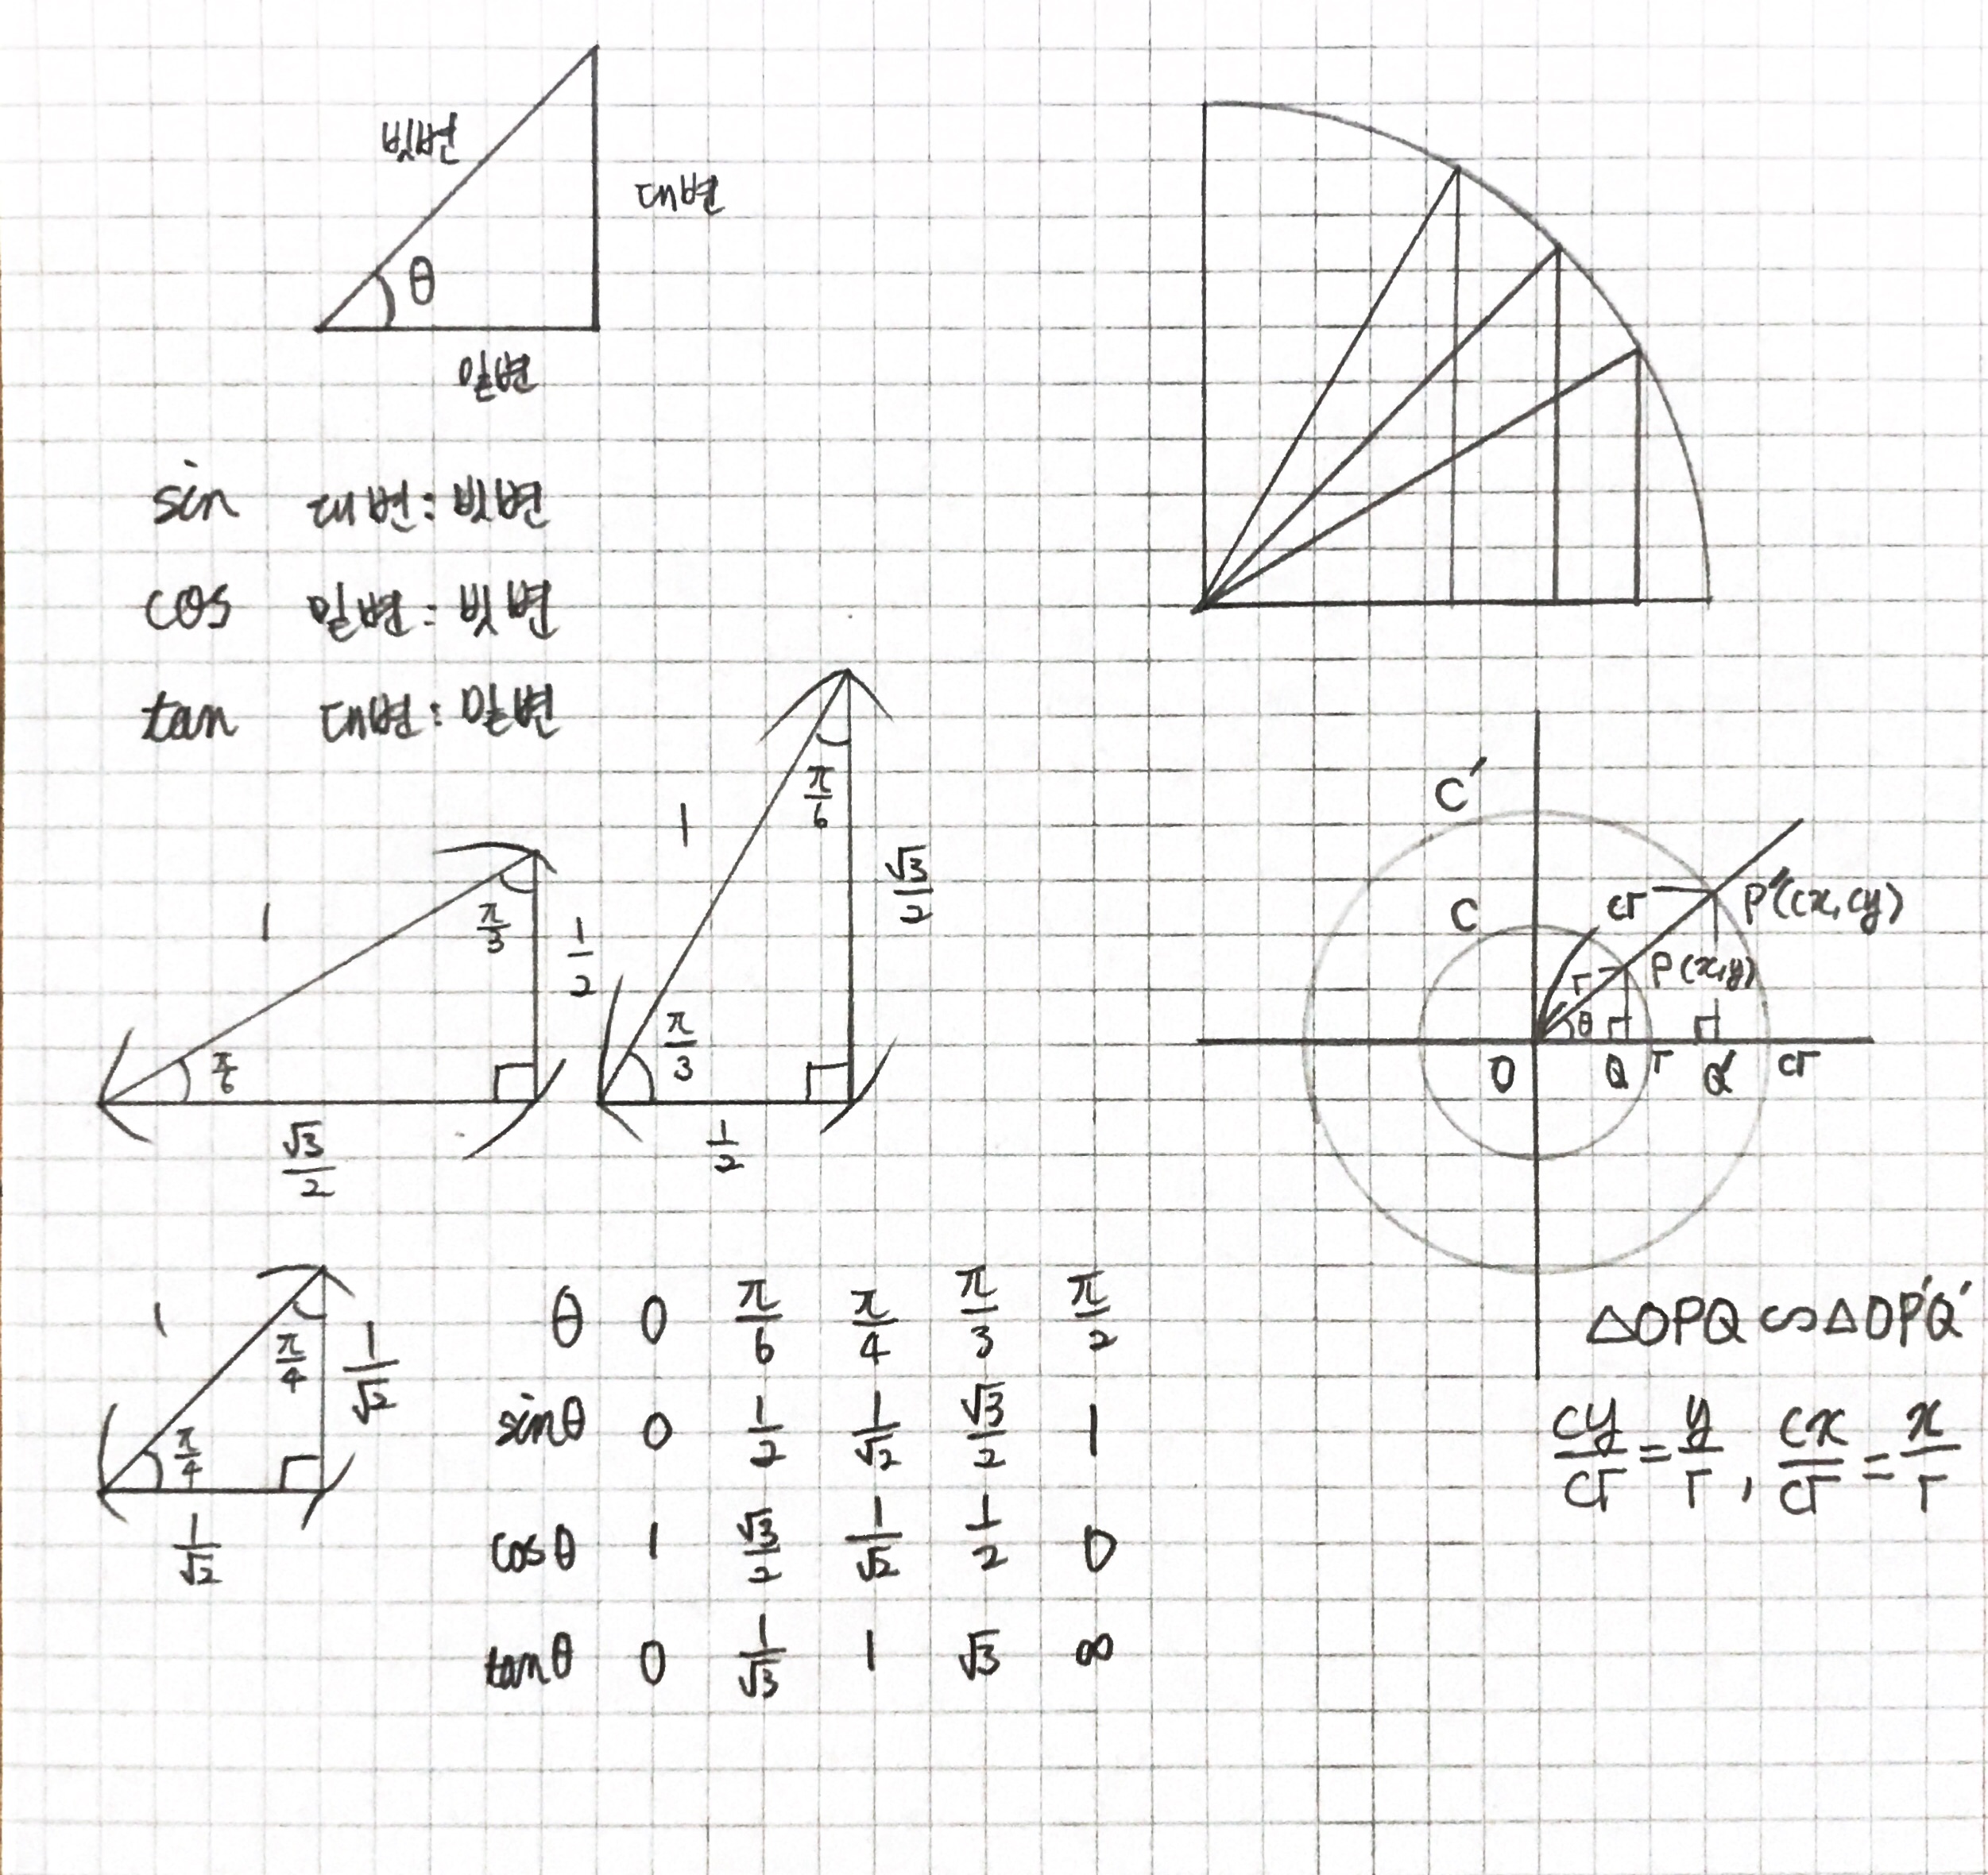 빗변
대변
θ
밑변
sin 대변 : 빗변
cos 밑변 : 빗변
tan 대변 : 밑변
1
π/3
1/2
π/6
√3/2
1
π/6
√3/2
π/3
1/2
1
π/4
1/√2
π/4
1/√2
θ 0 π/6 π/4 π/3 π/2
sinθ 0 1/2 1/√2 √3/2 1
cosθ 1 √3/2 1/√2 1/2 0
tanθ 0 1/√3 1 √3 ∞
C′
C
cr P′(cx, cy)
r P(x, y)
θ
O Q r Q′ cr
△OPQ ∽ △OP′Q′
cy/cr = y/r , cx/cr = x/r